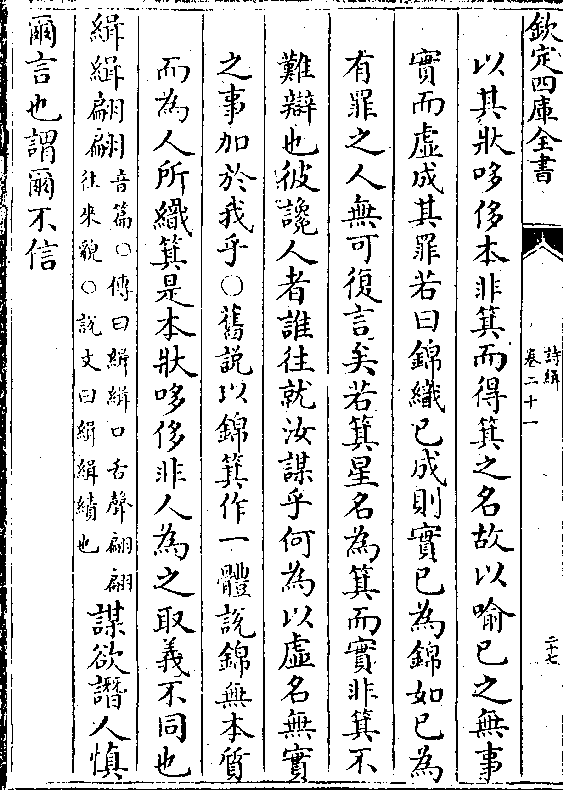 欽定四庫全書
詩緝
卷二十一
二十七
以其狀哆侈本非箕而得箕之名故以喻己之無事
實而虛成其罪若曰錦織已成則實已為錦如已為
有罪之人無可復言矣若箕星名為箕而實非箕不
難辯也彼讒人者誰往就汝謀乎何為以虛名無實
之事加於我乎○舊説以錦箕作一體説錦無本質
而為人所織箕是本狀哆侈非人為之取義不同也
緝緝翩翩音篇○傳曰緝緝口舌聲翩翩
往來貌○説文曰緝緝績也謀欲譖人慎
爾言也謂爾不信